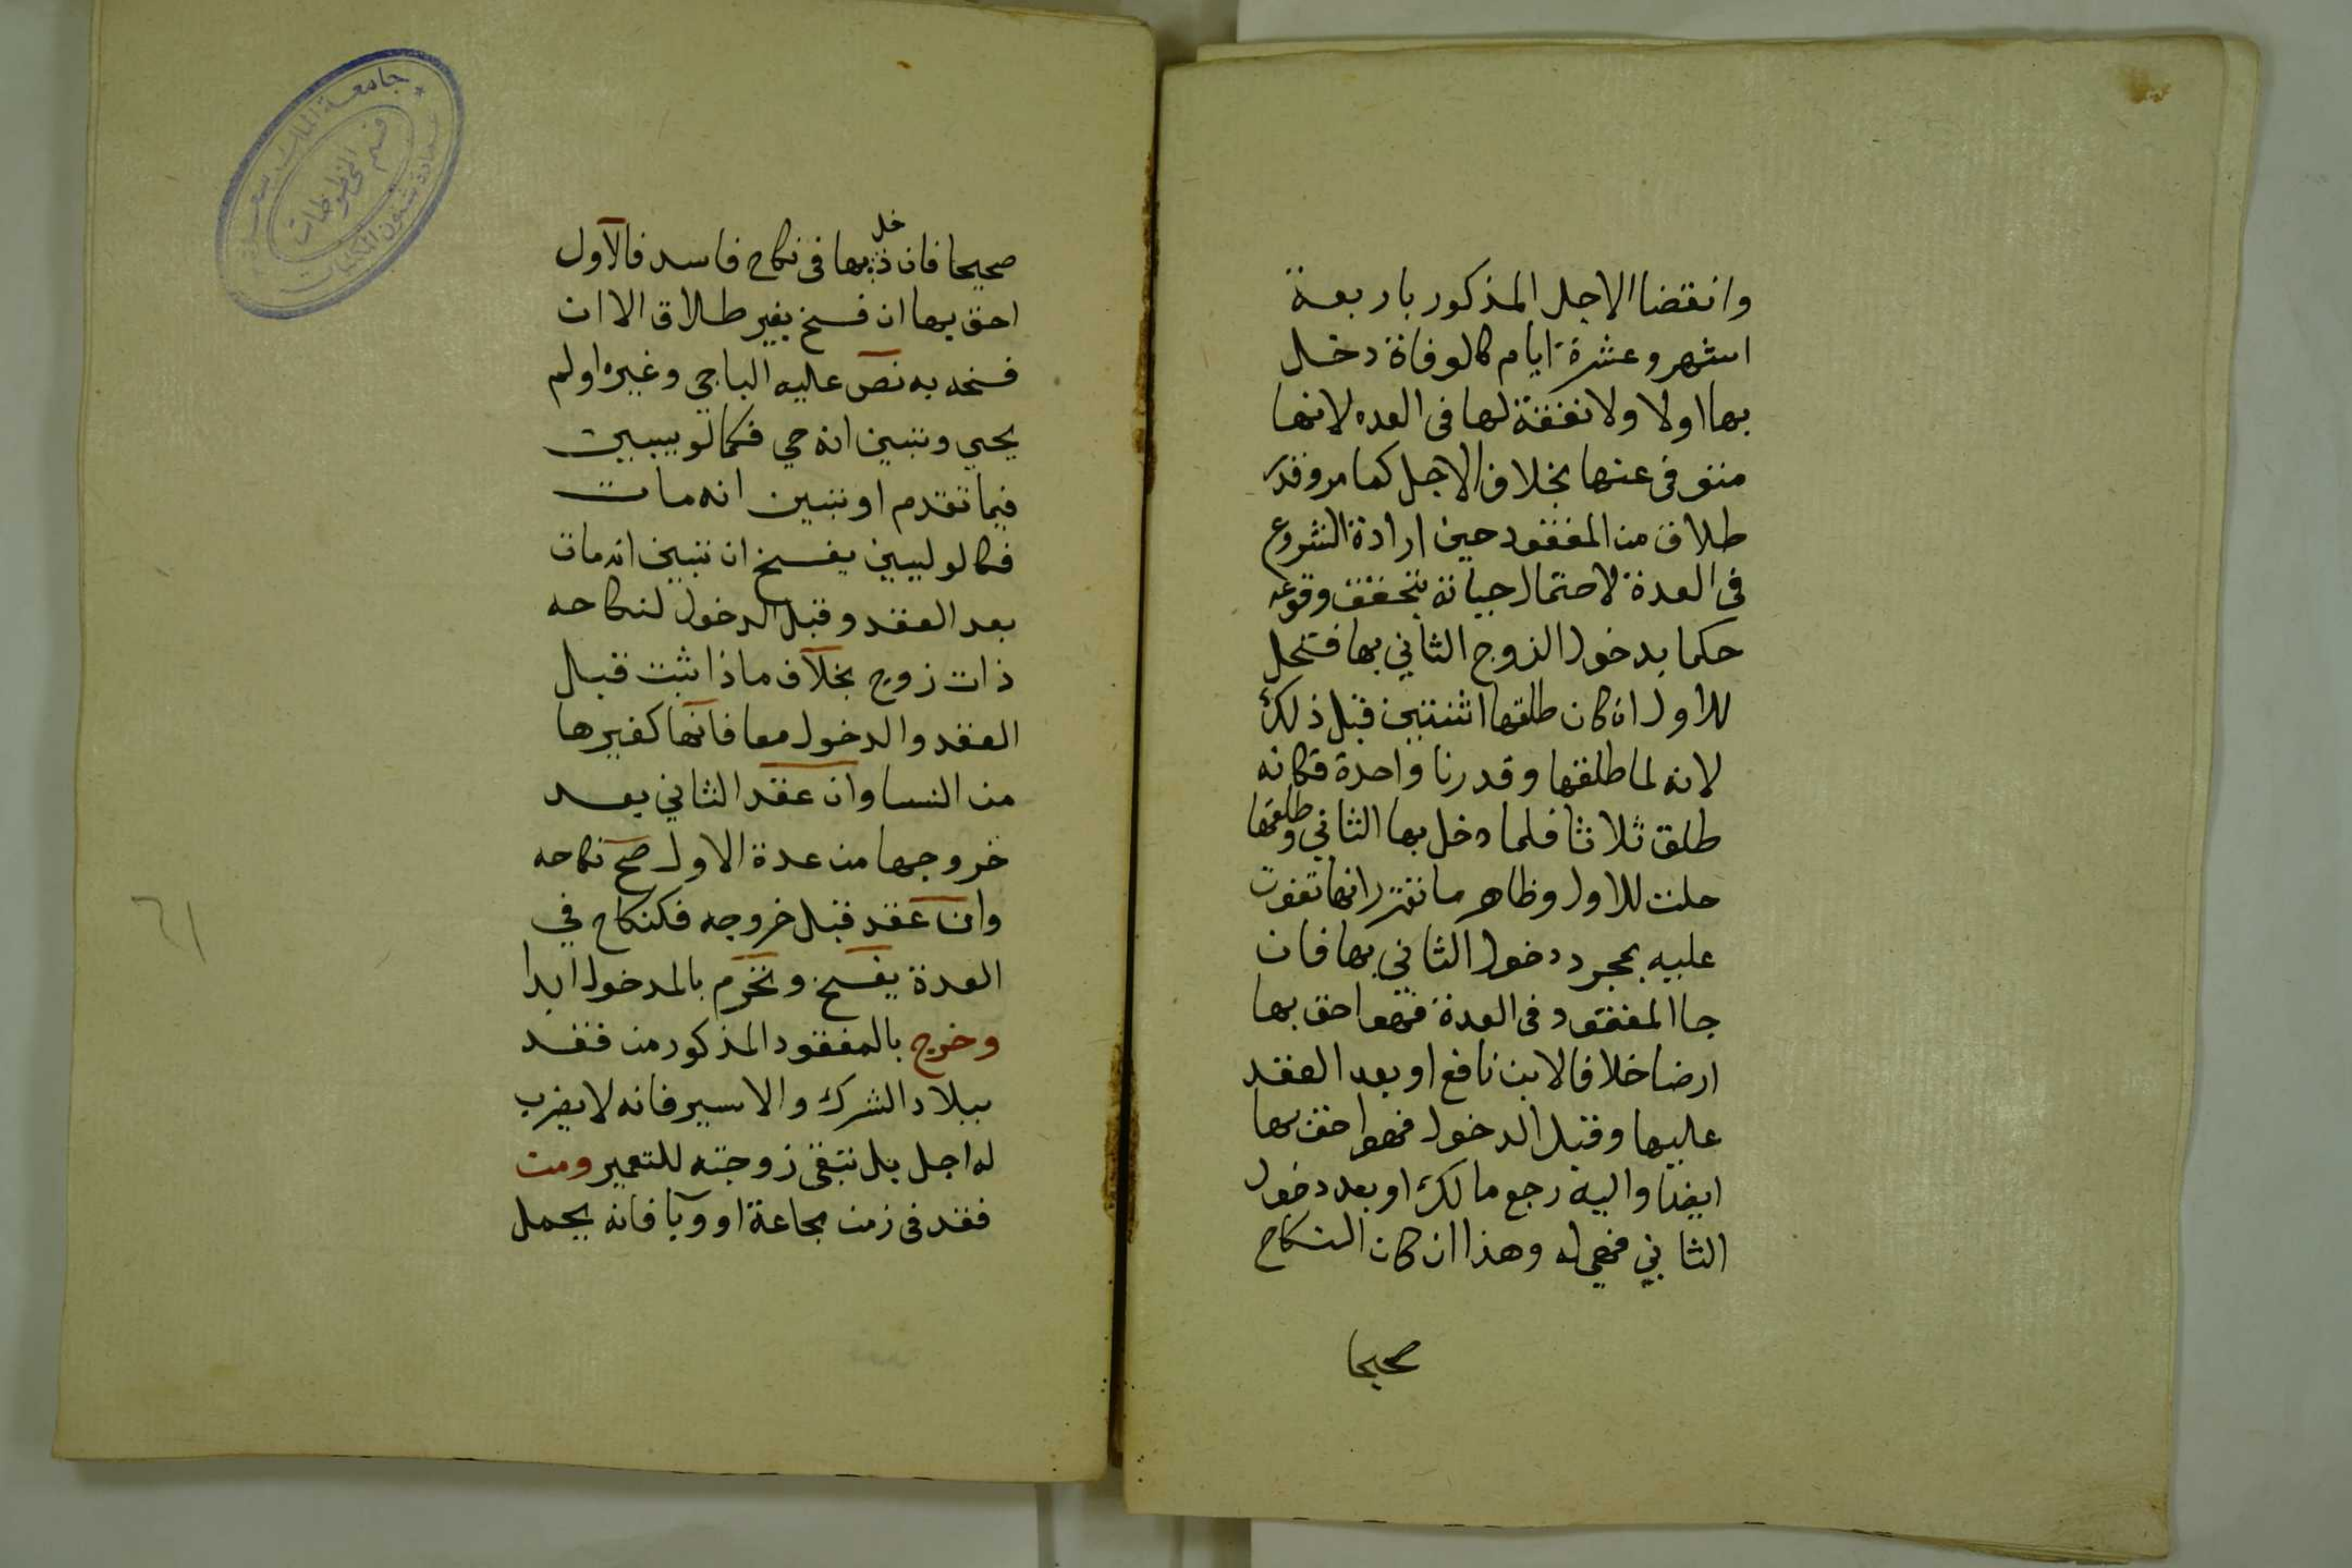 وانقضا الاجل المذكور باربعة
اشهر وعشرة ايام كالوفاة دخل
بها اولا ولا نفقة لها في العده لانها
متوفى عنها بخلاف الاجل كما مر وقدر
طلاق من المفقود حين ارادة الشروع
في العدة لاحتمال حياته يتحقق وقوعه
حكما بدخول الزوج الثاني بها فتحل
للاول ان كان طلقها اثنتين قبل ذلك
لانه لما طلقها وقدرنا واحدة فكانه
طلق ثلاثا فلما دخل بها الثاني وطلقها
حلت للاول وظاهر ما تقرر انها تفوت
عليه بمجرد دخول الثاني بها فان
جا المفقود في العدة فهو احق بها
ارضا خلافا لابن نافع او بعد العقد
عليها وقبل الدخول فهو احق بها
ايضا واليه رجع مالك او بعد دخول
الثاني فهي له وهذا ان كان النكاح
صحيحا
صحيحا فان دخل بها في نكاح فاسد فالاول
احق بها ان فسخ بغير طلاق الا ان
فسخه به نص عليه الباجي وغيره او لم
يجي وتبين انه حي فكما لو يبين
فيما تقدم او تبين انه مات
فكالوليين يفسخ ان تبين انه مات
بعد العقد وقبل الدخول لنكاحه
ذات زوج بخلاف ماذا ثبت قبل
العقد والدخول معا فانها كغيرها
من النسا وان عقد الثاني بعد
خروجها من عدة الاول صح نكاحه
وان عقد قبل خروجه فكنكاح في
العدة يفسخ وتحرم بالمدخول ابدا
وخرج بالمفقود المذكور من فقد
ببلاد الشرك والاسير فانه لا يضرب
له اجل بل تبقى زوجته للتعمير ومن
فقد في زمن مجاعة او وبا فانه يحمل
٦١
جامعة الملك سعود
قسم المخطوطات
عمادة شئون المكتبات